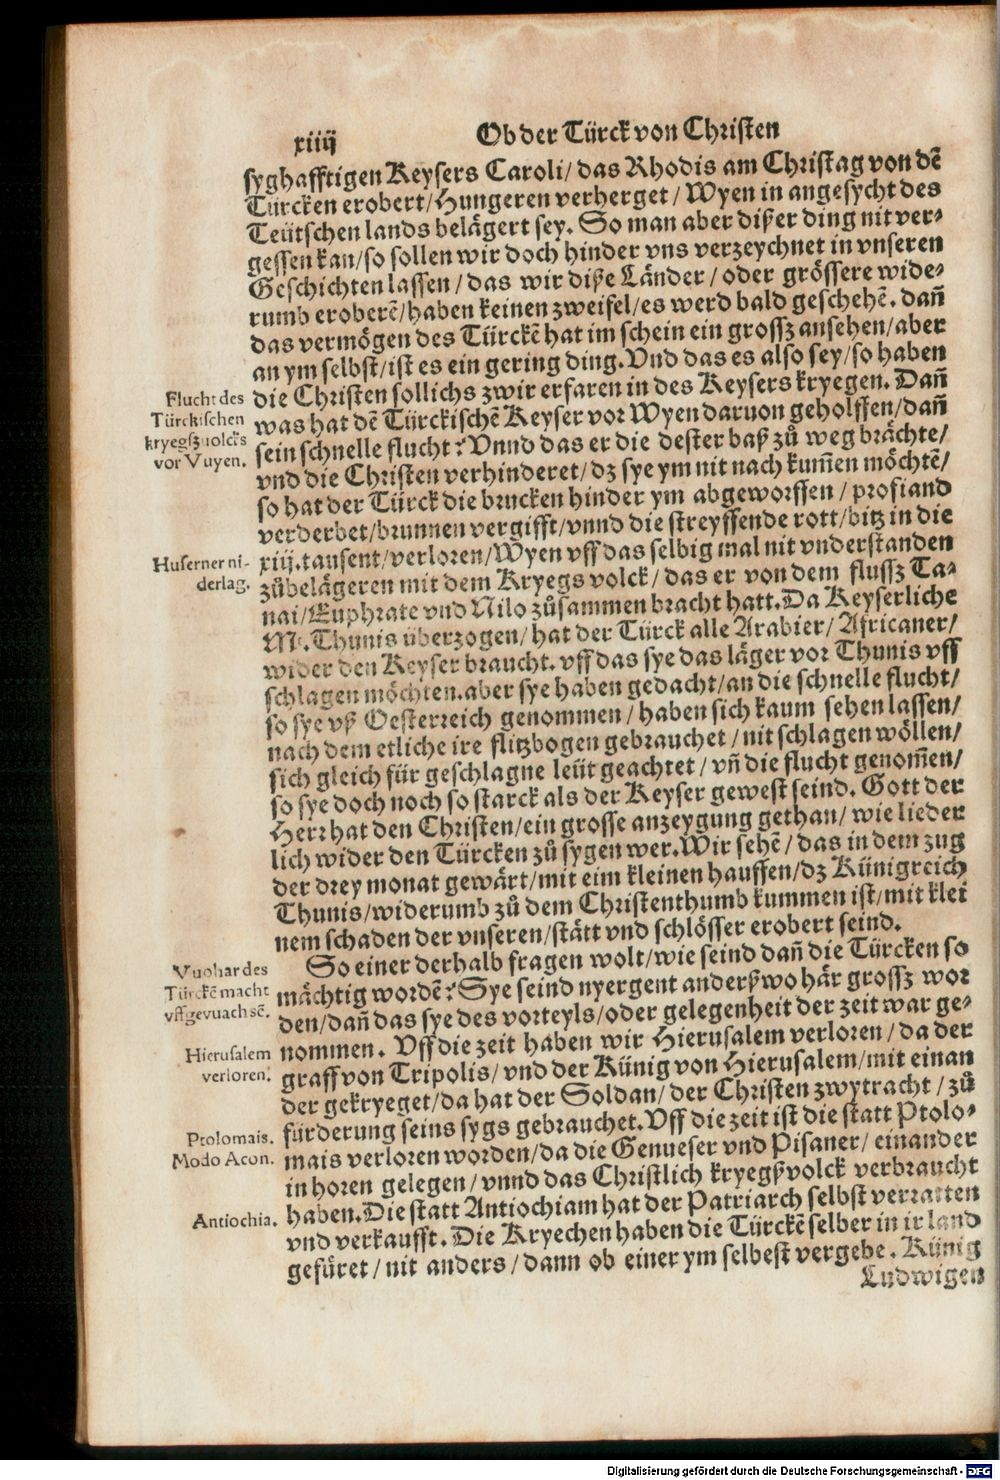 xiiij
Ob der Türck von Christen
syghafftigen Keysers Caroli/ das Rhodis am Christag von dẽ
Türcken erobert/ Hungeren verherget/ Wyen in angesycht des
Teütschen lands belägert sey. So man aber dißer ding nit ver-
gessen kan/ so sollen wir doch hinder vns verzeychnet in vnseren
Geschichten lassen/ das wir diße Länder/ oder grössere wide-
rumb eroberẽ/ haben keinen zweifel/ es werd bald geschehẽ. dañ
das vermögen des Türckẽ hat im schein ein grossz ansehen/ aber
an ym selbst/ ist es ein gering ding. Vnd das es also sey/ so haben
Flucht des
die Christen sollichs zwir erfaren in des Keysers kryegen. Dañ
Türckischen
was hat dẽ Türckischẽ Keyser vor Wyen daruon geholffen/ dañ
kryegßuolcks
sein schnelle flucht? Vnnd das er die dester baß zů weg brächte/
vor Vuyen.
vnd die Christen verhinderet/ dz sye ym nit nach kum̃en möchtẽ/
so hat der Türck die brucken hinder ym abgeworffen/ profiand
verderbet/ brunnen vergifft/ vnnd die streyffende rott/ bitz in die
Huserner ni-
xiij. tausent/ verloren/ Wyen vff das selbig mal nit vnderstanden
derlag.
zůbelägeren mit dem Kryegs volck/ das er von dem flussz Ta-
nai/ Euphrate vnd Nilo zůsammen bracht hatt. Da Keyserliche
M. Thunis überzogen/ hat der Türck alle Arabier/ Africaner/
wider den Keyser braucht. vff das sye das läger vor Thunis vff
schlagen möchten. aber sye haben gedacht/ an die schnelle flucht/
so sye vß Oesterreich genommen/ haben sich kaum sehen lassen/
nach dem etliche ire flitzbogen gebrauchet/ nit schlagen wöllen/
sich gleich für geschlagne leüt geachtet/ vñ die flucht genom̃en/
so sye doch noch so starck als der Keyser gewest seind. Gott der
Herr hat den Christen/ ein grosse anzeygung gethan/ wie lieder
lich wider den Türcken zů sygen wer. Wir sehẽ/ das in dem zug
der drey monat gewärt/ mit eim kleinen hauffen/ dz Künigreich
Thunis/ widerumb zů dem Christenthumb kummen ist/ mit klei
nem schaden der vnseren/ stätt vnd schlösser erobert seind.
Vuohar des
So einer derhalb fragen wolt/ wie seind dañ die Türcken so
Türckẽ macht
mächtig wordẽ? Sye seind nyergent anderßwo här grossz wor
vffgevuachsẽ.
den/ dañ das sye des vorteyls/ oder gelegenheit der zeit war ge-
Hierusalem
nommen. Vff die zeit haben wir Hierusalem verloren/ da der
verloren.
graff von Tripolis/ vnd der Künig von Hierusalem/ mit einan
der gekryeget/ da hat der Soldan/ der Christen zwytracht/ zů
Ptolomais.
fürderung seins sygs gebrauchet. Vff die zeit ist die statt Ptolo-
Modo Acon.
mais verloren worden/ da die Genueser vnd Pisaner/ einander
in horen gelegen/ vnnd das Christlich kryegßvolck verbraucht
Antiochia.
haben. Die statt Antiochiam hat der Patriarch selbst verratten
vnd verkaufft. Die Kryechen haben die Türckẽ selber in ir land
gefüret/ nit anders/ dann ob einer ym selbest vergebe. Künig
Ludwigen
Digitalisierung gefördert durch die Deutsche Forschungsgemeinschaft - DFG